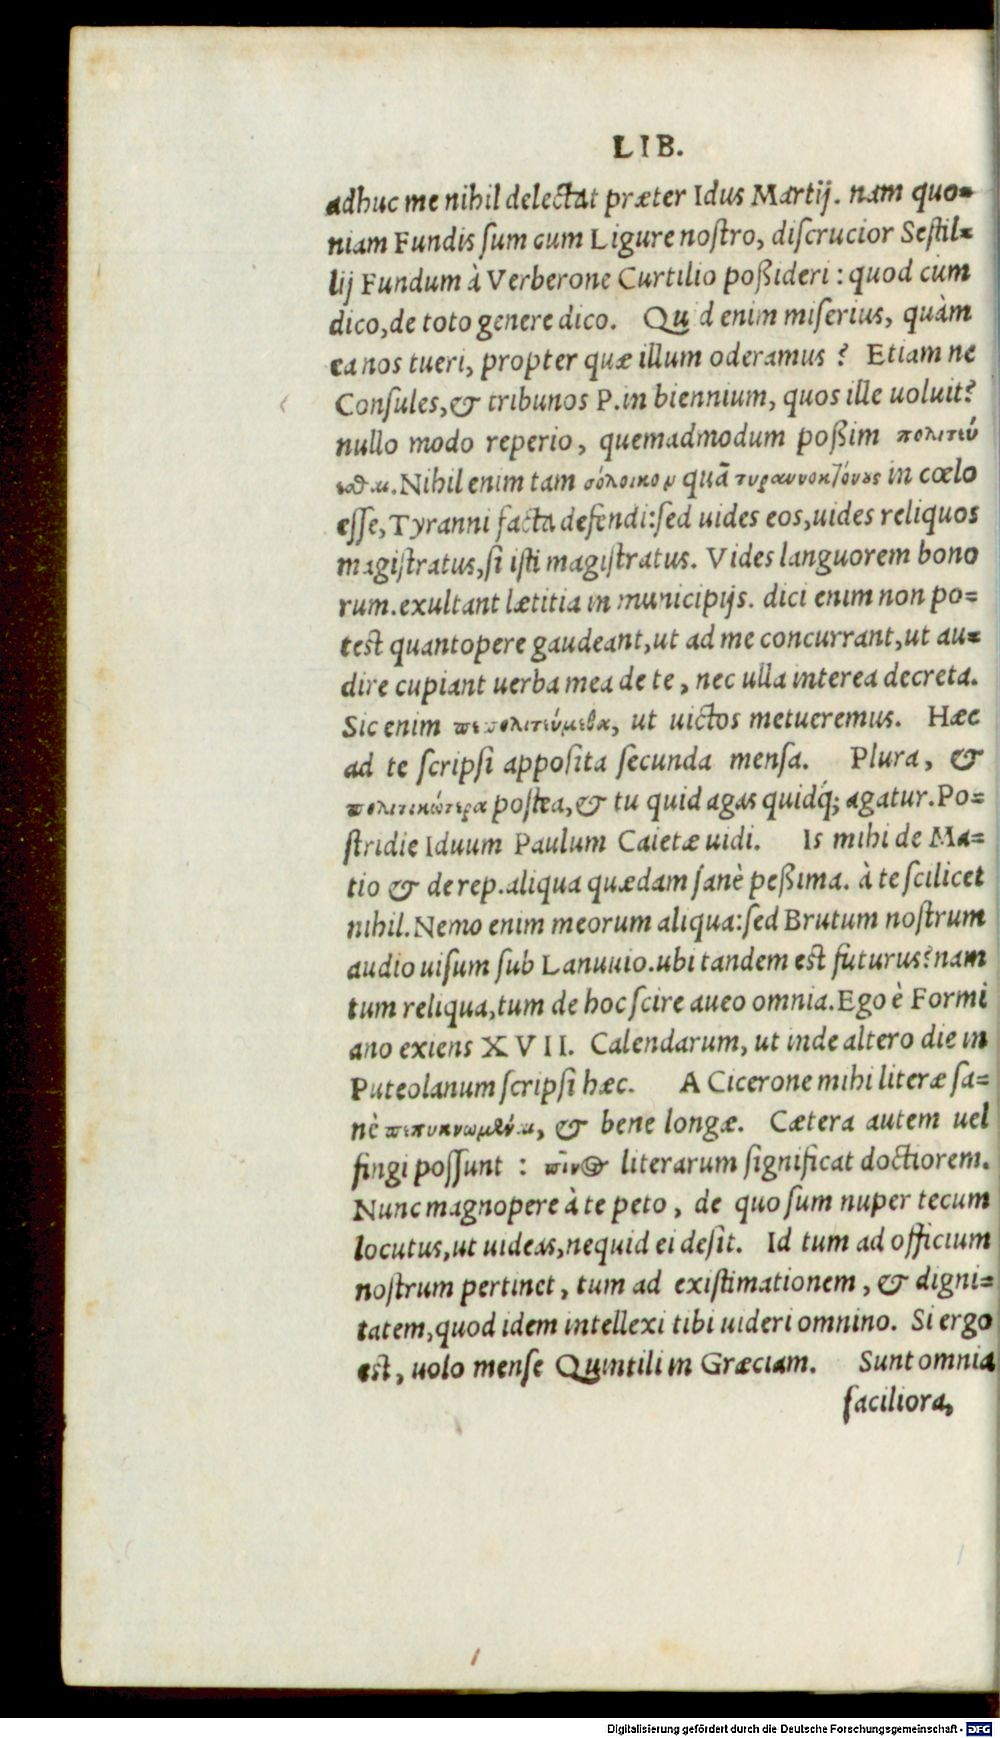 LIB.
adhuc me nihil delectat præter Idus Martij. nam quo=
niam Fundis ſum cum Ligure noſtro, diſcrucior Seſtil=
lij Fundum à Verberone Curtilio poßideri : quod cùm
dico, de toto genere dico. Qu d enim miſerius, quàm
ea nos tueri, propter quæ illum oderamus ? Etiam ne
Conſules, & tribunos P. in biennium, quos ille uoluit?
nullo modo reperio, quemadmodum poßim πολιτεύ
εαθαι. Nihil enim tam σόλοικον quā τυραννοκτόνους in cœlo
eſſe, Tyranni facta defendi: ſed uides eos, uides reliquos
magiſtratus, ſi iſti magiſtratus. Vides languorem bono
rum. exultant lætitia in municipijs. dici enim non po=
test quantopere gaudeant, ut ad me concurrant, ut au=
dire cupiant uerba mea de te, nec ulla interea decreta.
Sic enim πεπολιτεύμεθα, ut uictos metueremus. Hæc
ad te ſcripſi appoſita ſecunda menſa. Plura, &
πολιτικώτερα poſtea, & tu quid agas quidq́; agatur. Po=
ſtridie Iduum Paulum Caietæ uidi. Is mihi de Ma=
tio & de rep. aliqua quædam ſanè peßima. à te ſcilicet
nihil. Nemo enim meorum aliqua: ſed Brutum noſtrum
audio uiſum ſub Lanuuio. ubi tandem est futurus? nam
tum reliqua, tum de hoc ſcire aueo omnia. Ego è Formi
ano exiens XVII. Calendarum, ut inde altero die in
Puteolanum ſcripſi hæc. A Cicerone mihi literæ ſa=
nè πεπυκνωμέναι, & bene longæ. Cætera autem uel
fingi poſſunt : πῖνος literarum ſignificat doctiorem.
Nunc magnopere à te peto, de quo ſum nuper tecum
locutus, ut uideas, nequid ei deſit. Id tum ad officium
noſtrum pertinet, tum ad exiſtimationem, & digni=
tatem, quod idem intellexi tibi uideri omnino. Si ergo
est, uolo menſe Quintili in Græciam. Sunt omnia
faciliora,
Digitalisierung gefördert durch die Deutsche Forschungsgemeinschaft - DFG